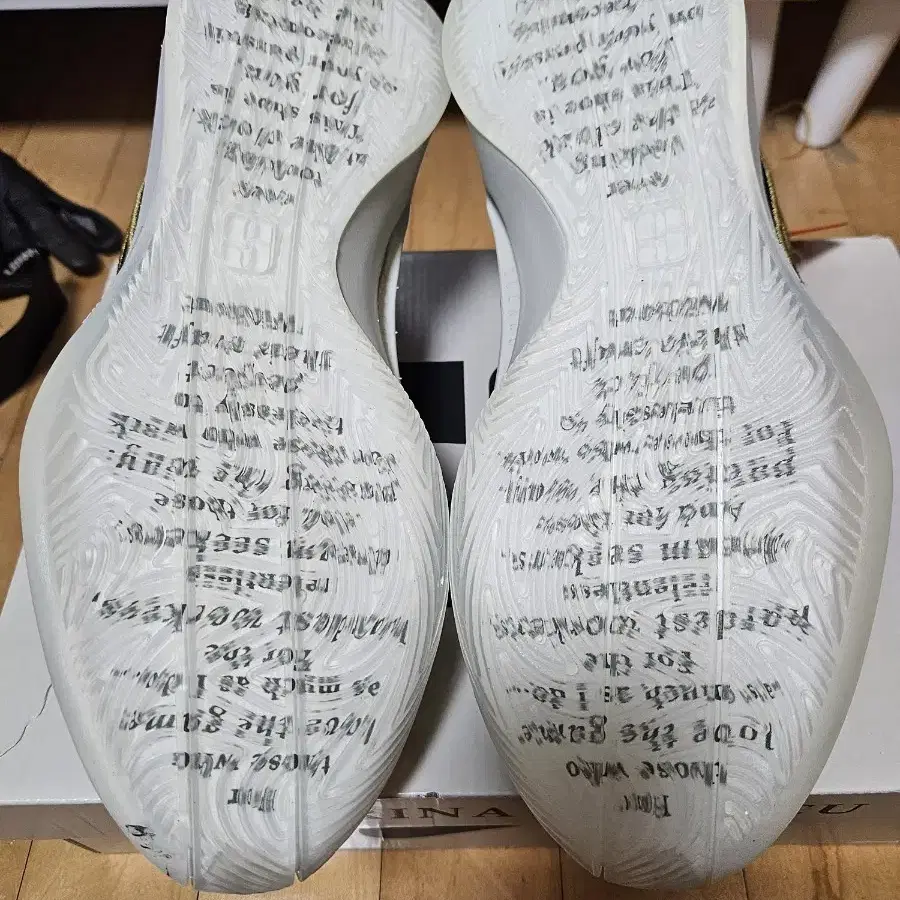 For
those who
love the game
as much as I do...
For the
hardest workers,
relentless
dream seekers.
And for those
the way.
For those who work
tirelessly to
perfect
their craft
Without
ever
looking
at the clock
This shoe is
for you.
For
those who
love the game
as much as I do...
For the
hardest workers
relentless
dream seekers.
And for those
the way.
For those who work
tirelessly to
perfect
their craft
Without
ever
looking
at the clock
This shoe is
for you.
RINA